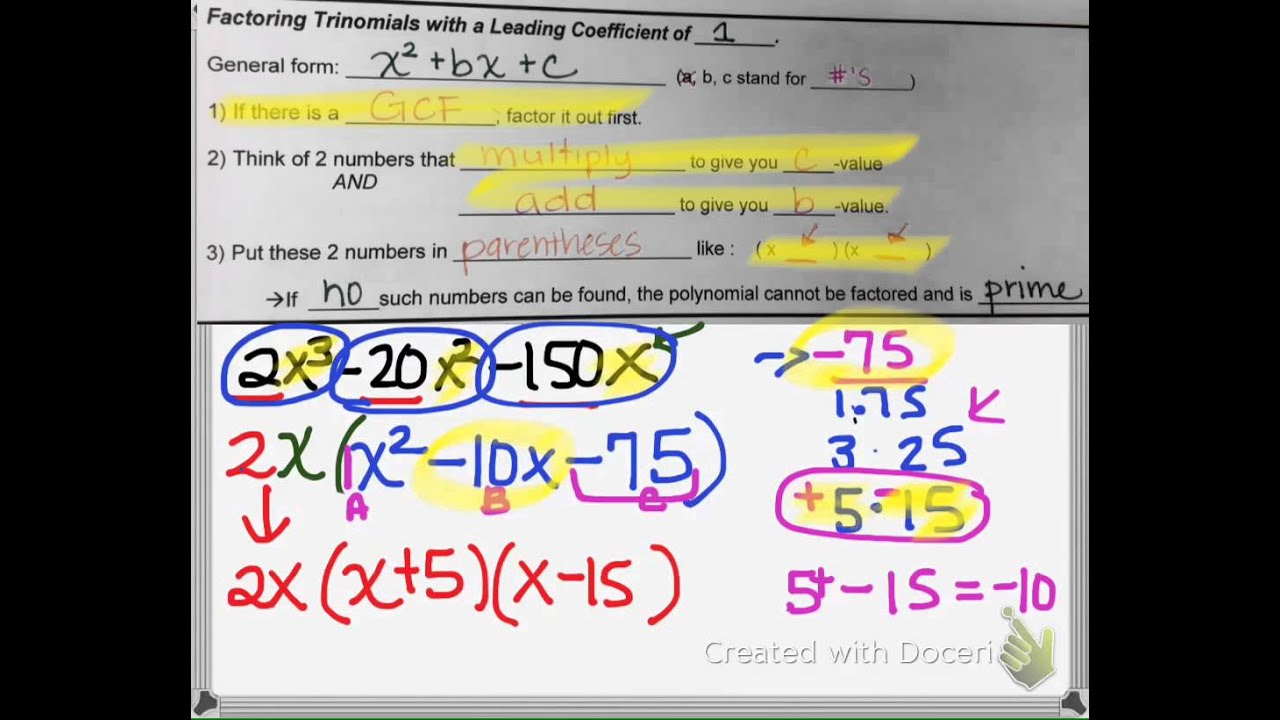 Factoring Trinomials with a Leading Coefficient of 1.
General form: x² + bx + c (a, b, c stand for #'s)
1) If there is a GCF, factor it out first.
2) Think of 2 numbers that multiply to give you c-value
AND
add to give you b-value.
3) Put these 2 numbers in parentheses like : (x __ )(x __ )
→If no such numbers can be found, the polynomial cannot be factored and is prime
2x³ -20x² -150x
2x(1x² -10x -75)
A B C
2x(x+5)(x-15)
→ -75
1·75
3·25
+5·-15
5+-15=-10
Created with Doceri